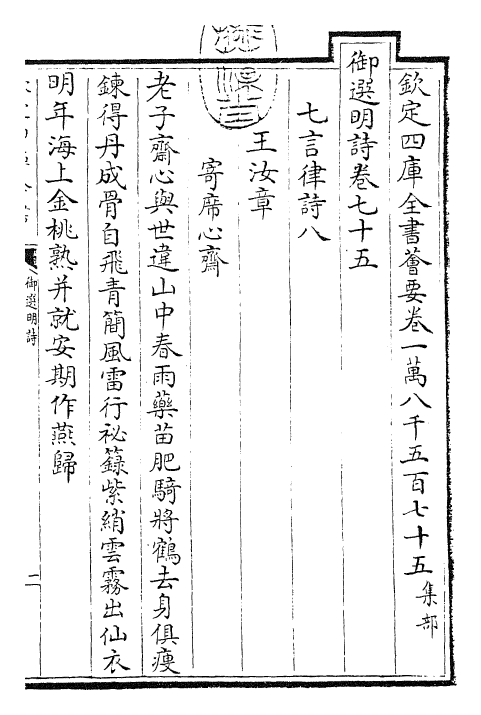 欽定四庫全書薈要卷一萬八千五百七十五集部
御選明詩卷七十五
七言律詩八
王汝章
寄席心齋
老子齋心與世違山中春雨藥苗肥騎將鶴去身俱瘦
鍊得丹成骨自飛青簡風雷行祕籙紫綃雲霧出仙衣
明年海上金桃熟并就安期作燕歸
御選明詩
二